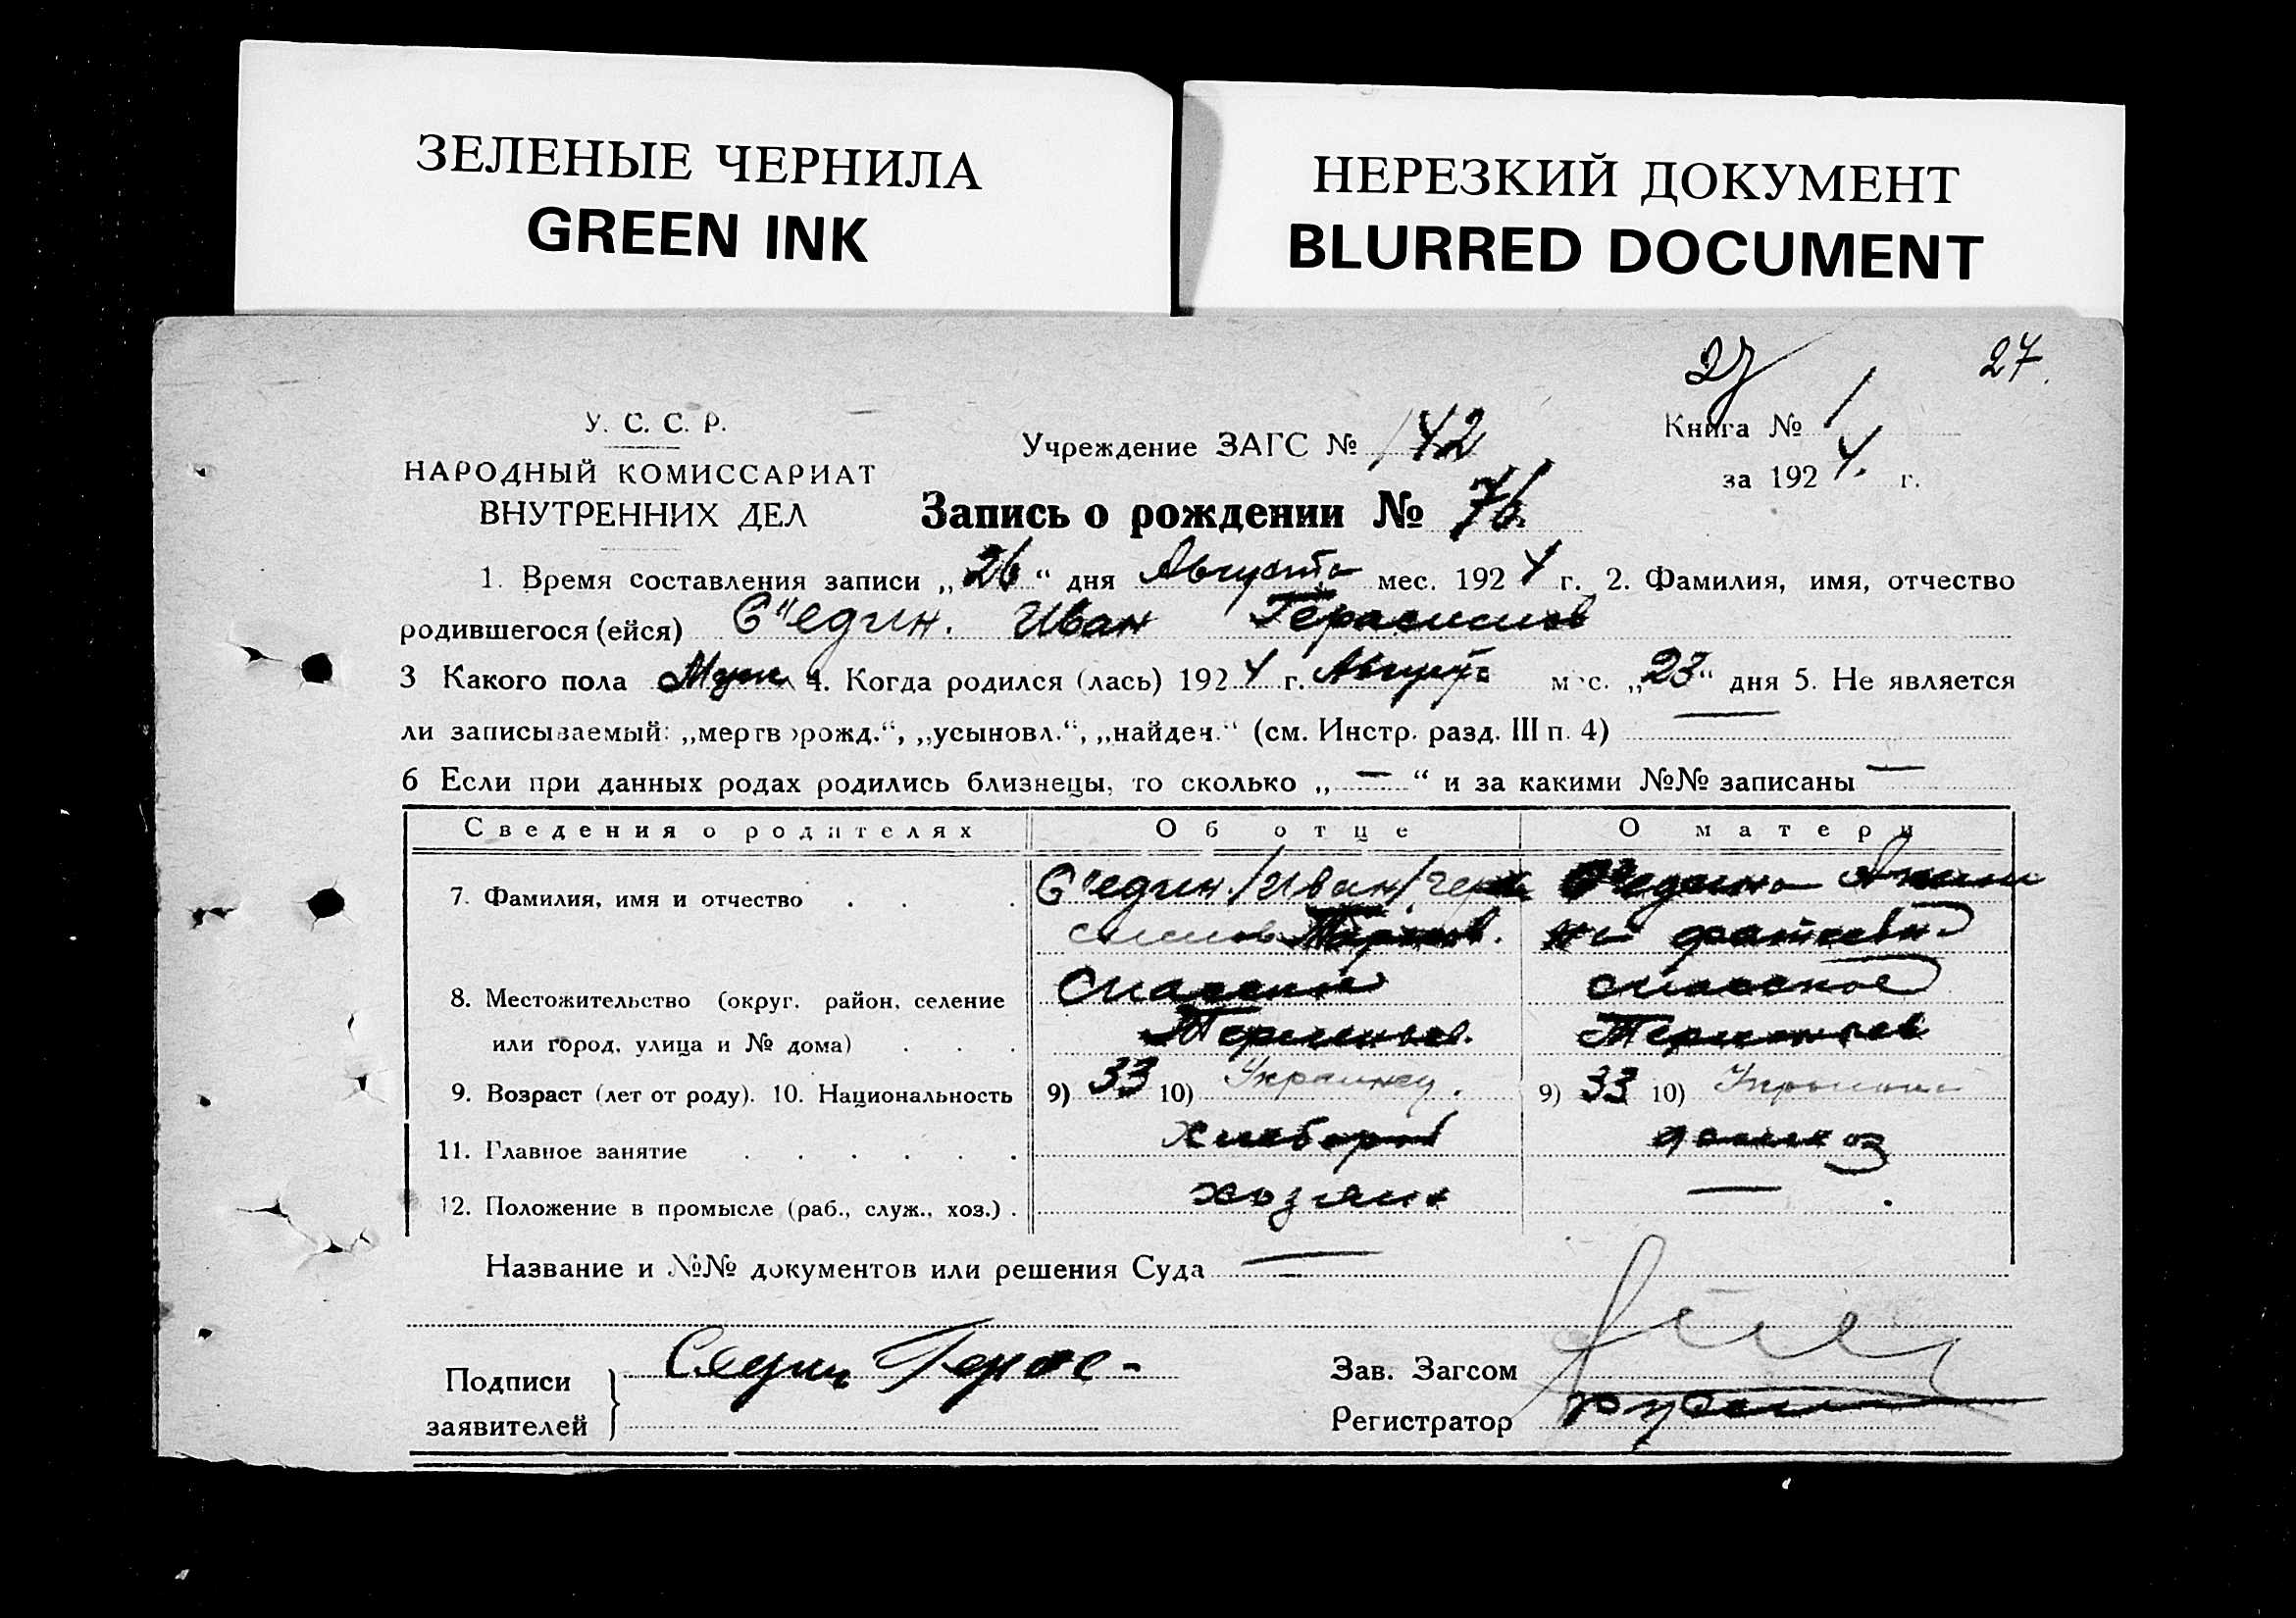 ЗЕЛЕНЫЕ ЧЕРНИЛА
GREEN INK
НЕРЕЗКИЙ ДОКУМЕНТ
BLURRED DOCUMENT
27 27.
У. С. С. Р.
НАРОДНЫЙ КОМИССАРИАТ
ВНУТРЕННИХ ДЕЛ
Учреждение ЗАГС № 142
Книга № 1
за 1924. г.
Запись о рождении № 76
1. Время составления записи „26“ дня Августа мес. 1924 г. 2. Фамилия, имя, отчество
родившегося (ейся) С"един. Иван Герасимов
3 Какого пола Муж 4. Когда родился (лась) 1924 г. Августа мес. „23“ дня 5. Не является
ли записываемый: „мертворожд.“, „усыновл.“, „найден.“ (см. Инстр. разд. III п. 4) —
6 Если при данных родах родились близнецы, то сколько „—“ и за какими №№ записаны —
Сведения о родителях Об отце О матери
7. Фамилия, имя и отчество С"един. /Иван/ Гера С"едина
симов
8. Местожительство (округ. район, селение Спасский Спасское
или город, улица и № дома)
9. Возраст (лет от роду). 10. Национальность 9) 33 10) Украинец. 9) 33 10)
11. Главное занятие Хлебороб домхоз
12. Положение в промысле (раб., служ., хоз.) хозяин —
Название и №№ документов или решения Суда —
Подписи
заявителей
Седин Герас-
Зав. Загсом
Регистратор